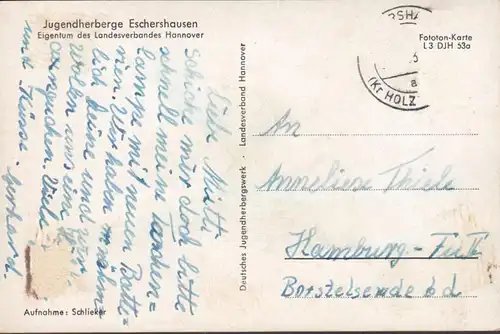 Jugendherberge Eschershausen
Eigentum des Landesverbandes Hannover
Fototon-Karte
L 3 DJH 53a
SHA
a
(Kr HOLZ
Liebe Mutti
schicke mir doch bitte
schnell meine Taschen-
lampe mit neuen Batte-
rien. Wir haben
deine und
wollen uns eine
Viele
und Küsse. Gerhard.
Deutsches Jugendherbergswerk · Landesverband Hannover
An
Anneliese Thiele
Hamburg-
Borstelsende 6d
Aufnahme: Schlieker